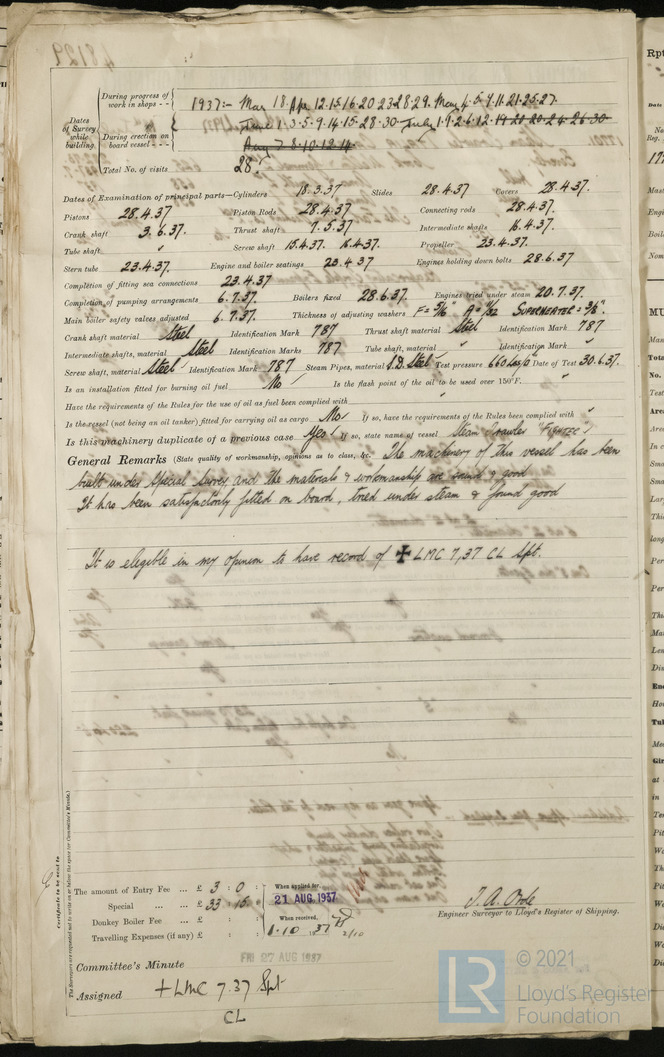 Dates of Survey while building.
During progress of work in shops - - 1937:- Mar 18. Apr 12.15.16.20.23.28.29. May 4.5.7.11.21.25.27.
During erection on board vessel - - - June 1.3.5.9.14.15.28.30. July 1.9.2.6.12.19.20.24.26.30
Aug 7.8.10.12.14
Total No. of visits 28.
Dates of Examination of principal parts—Cylinders 18.3.37 Slides 28.4.37. Covers 28.4.37.
Pistons 28.4.37 Piston Rods 28.4.37 Connecting rods 28.4.37.
Crank shaft 3.6.37. Thrust shaft 7.5.37 Intermediate shafts 16.4.37.
Tube shaft Screw shaft 15.4.37. 16.4.37. Propeller 23.4.37.
Stern tube 23.4.37. Engine and boiler seatings 23.4.37 Engines holding down bolts 28.6.37
Completion of fitting sea connections 23.4.37
Completion of pumping arrangements 6.7.37. Boilers fixed 28.6.37. Engines tried under steam 20.7.37.
Main boiler safety valves adjusted 6.7.37. Thickness of adjusting washers F = 5/16" A = 11/32 SUPERHEATER = 3/8".
Crank shaft material Steel Identification Mark 787 Thrust shaft material Steel Identification Mark 787
Intermediate shafts, material Steel Identification Marks 787 Tube shaft, material " Identification Mark "
Screw shaft, material Steel Identification Mark 787 Steam Pipes, material S.D. Steel Test pressure 660 Date of Test 30.6.37.
Is an installation fitted for burning oil fuel No Is the flash point of the oil to be used over 150°F. "
Have the requirements of the Rules for the use of oil as fuel been complied with
Is the vessel (not being an oil tanker) fitted for carrying oil as cargo No If so, have the requirements of the Rules been complied with "
Is this machinery duplicate of a previous case Yes If so, state name of vessel Steam Trawler
General Remarks (State quality of workmanship, opinions as to class, &c. The machinery of this vessel has been
built under Special Survey and the materials & workmanship are sound & good
It has been satisfactorily fitted on board, tried under steam & found good
It is eligible in my opinion to have record of ✠ LMC 7,37 CL Spt.
Certificate to be sent to
The Surveyors are requested not to write on or below the space for Committee's Minute.
The amount of Entry Fee ... £ 3 : 0 :
Special ... ... £ 33 : 15 :
Donkey Boiler Fee ... £ : :
Travelling Expenses (if any) £ : :
When applied for,
21 AUG 1937
When received,
1.10.37
2/10
Engineer Surveyor to Lloyd's Register of Shipping.
Committee's Minute FRI 27 AUG 1937
Assigned + LMC 7.37 Spt
CL
LR
© 2021
Lloyd's Register
Foundation